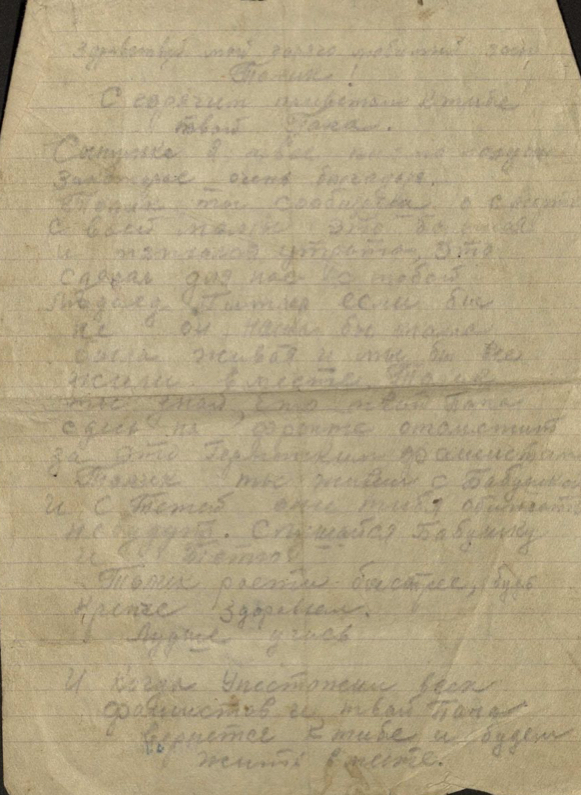 Здравствуй мой горячо любимый сын
Толик!
С горячим приветом к тибе
твой Папа.
Сынулька я твое письмо получил
за которое очень благодарю.
Толик ты сообщаеш о смерте
своей мамы это большая
и утрата, Это
сделал для нас с тобой
Людоед Гитлер если бы
не он наша бы мама
была живая и мы бы все
жили вместе. Толик
ты знай, что твой Папа
сдесь на фронте отомстит
за это Германским фашистам
Толик ты живи с Бабушкой
и с Тетей они тибя обижать
не будут. Слушайся Бабушку
и Тетю
Толик рости быстрее, будь
крепче здоровьем.
Лудше учись
И когда Унистожим всех
фашистов и твой Папа
вернетсе к тибе и будем
жить вместе.